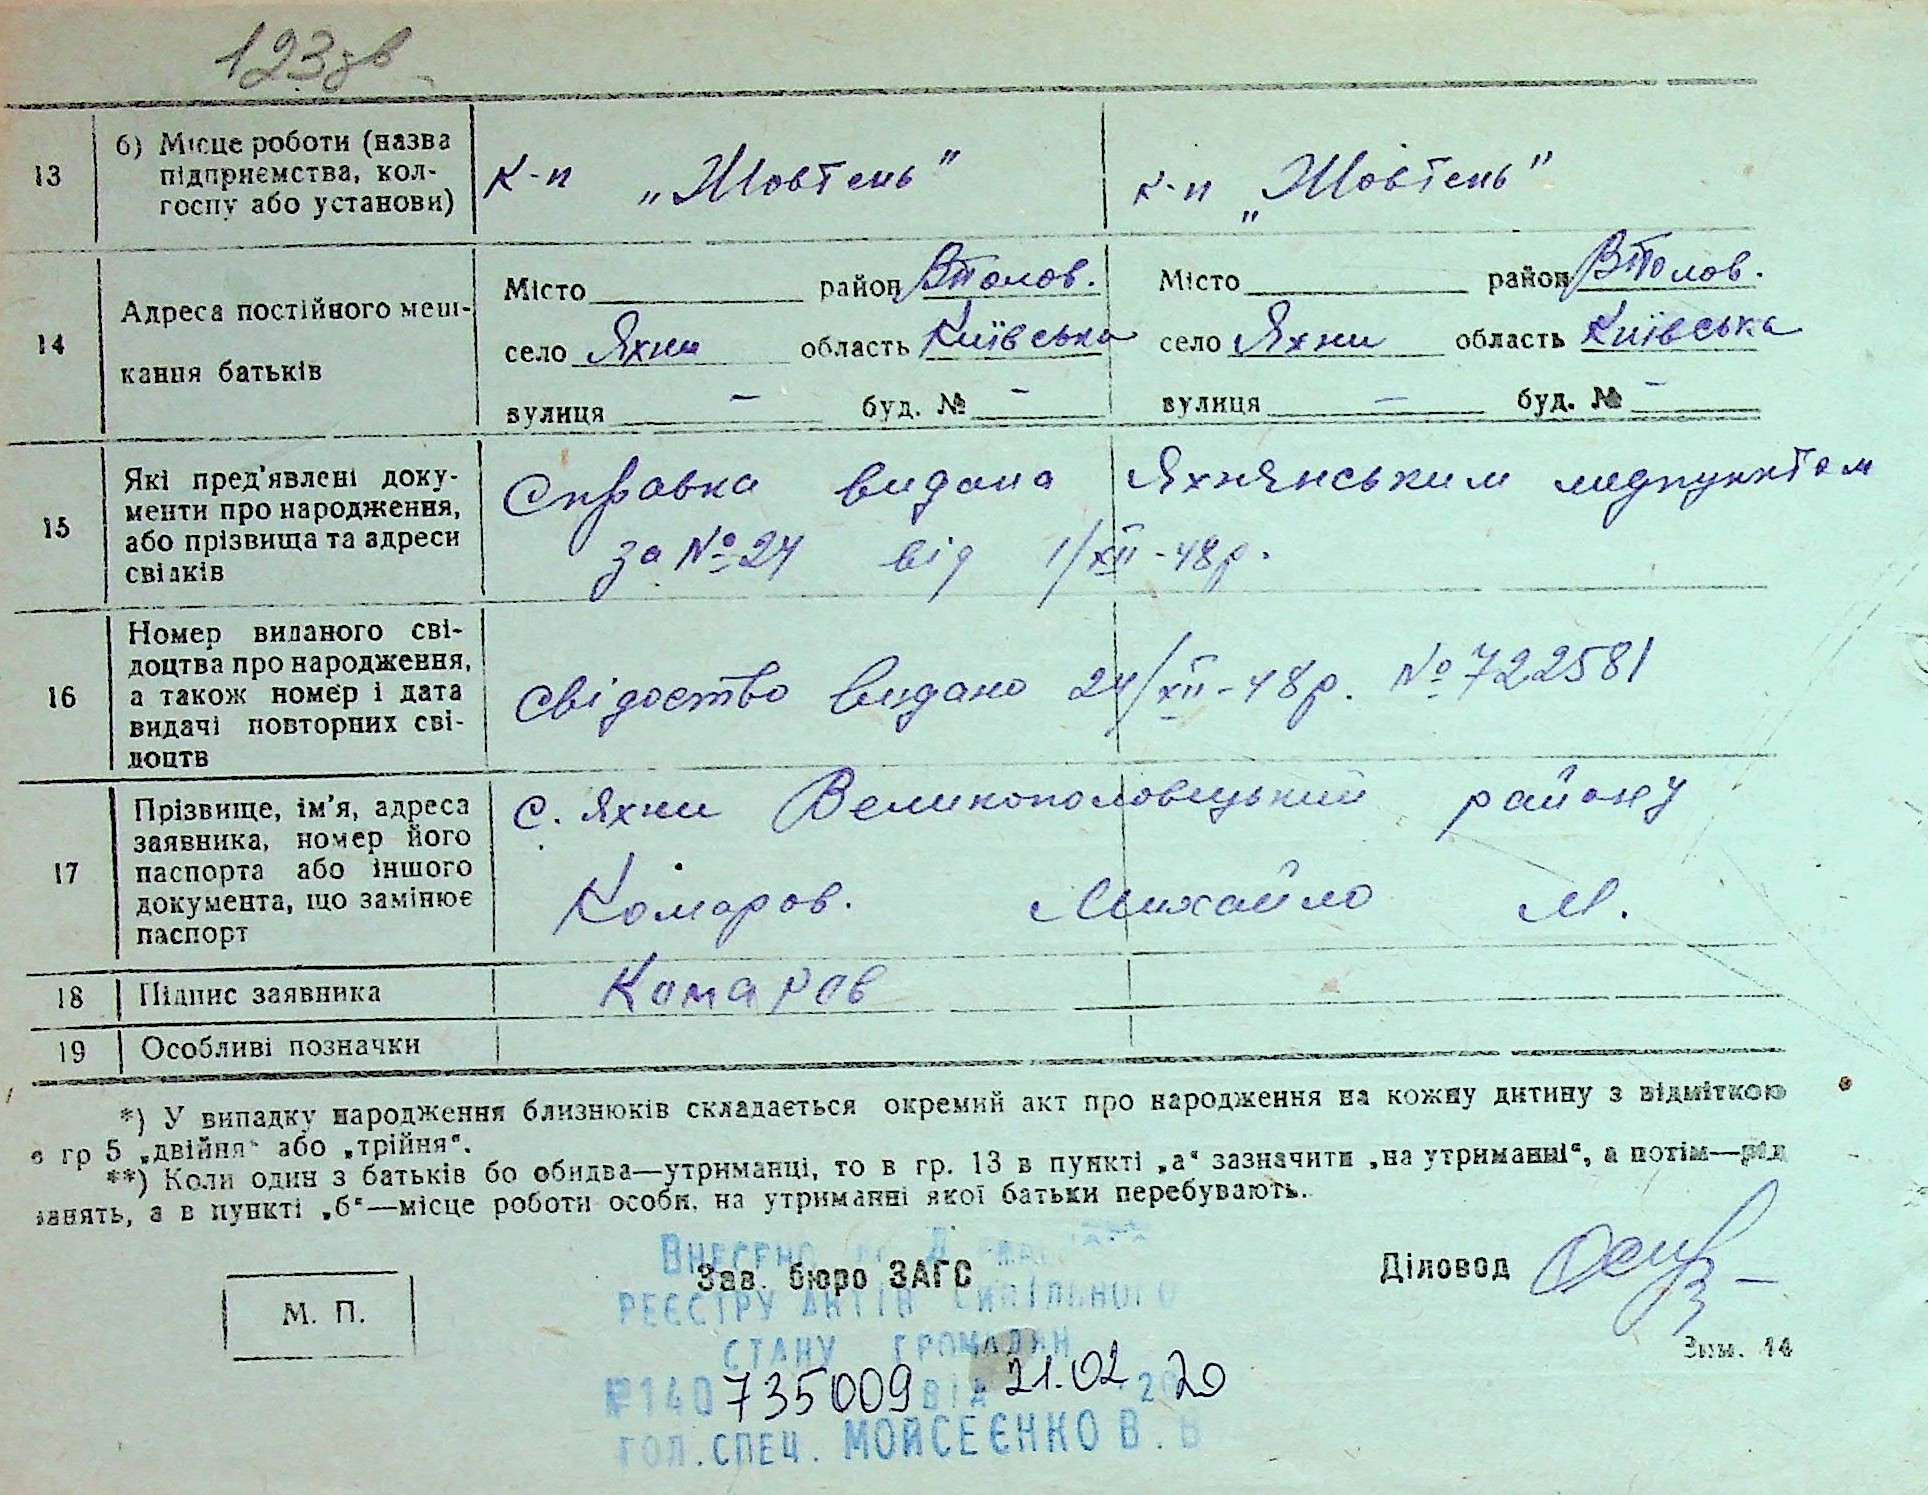 123зв
13
б) Місце роботи (назва
підприємства, кол-
госпу або установи)
К-п „Жовтень"
К-п „Жовтень"
14
Адреса постійного меш-
кання батьків
Місто район ВПолов.
село Яхни область Київська
вулиця - буд. № -
Місто район ВПолов.
село Яхни область Київська
вулиця - буд. № -
15
Які пред'явлені доку-
менти про народження,
або прізвища та адреси
свідків
Справка видана Яхнянським медпунктом
за № 24 від 1/XII-48р.
16
Номер виданого сві-
доцтва про народження,
а також номер і дата
видачі повторних сві-
доцтв
Свідоство видано 24/XII-48р. № 722581
17
Прізвище, ім'я, адреса
заявника, номер його
паспорта або іншого
документа, що замінює
паспорт
с. Яхни Великополовецький району
Комаров. Михайло М.
18
Підпис заявника
Комаров
19
Особливі позначки
*) У випадку народження близнюків складається окремий акт про народження на кожну дитину з відміткою
в гр 5 „двійня" або „трійня".
**) Коли один з батьків бо обидва—утриманці, то в гр. 13 в пункті „а" зазначити „на утриманні", а потім—рід
занять, а в пункті „б"—місце роботи особи, на утриманні якої батьки перебувають.
М. П.
Зав. бюро ЗАГС
Діловод
Внесено до
реєстру актів цивільного
стану громадян
№140 735009 від 21.02 2020
гол. спец. Мойсеєнко В. В
Зам. 14